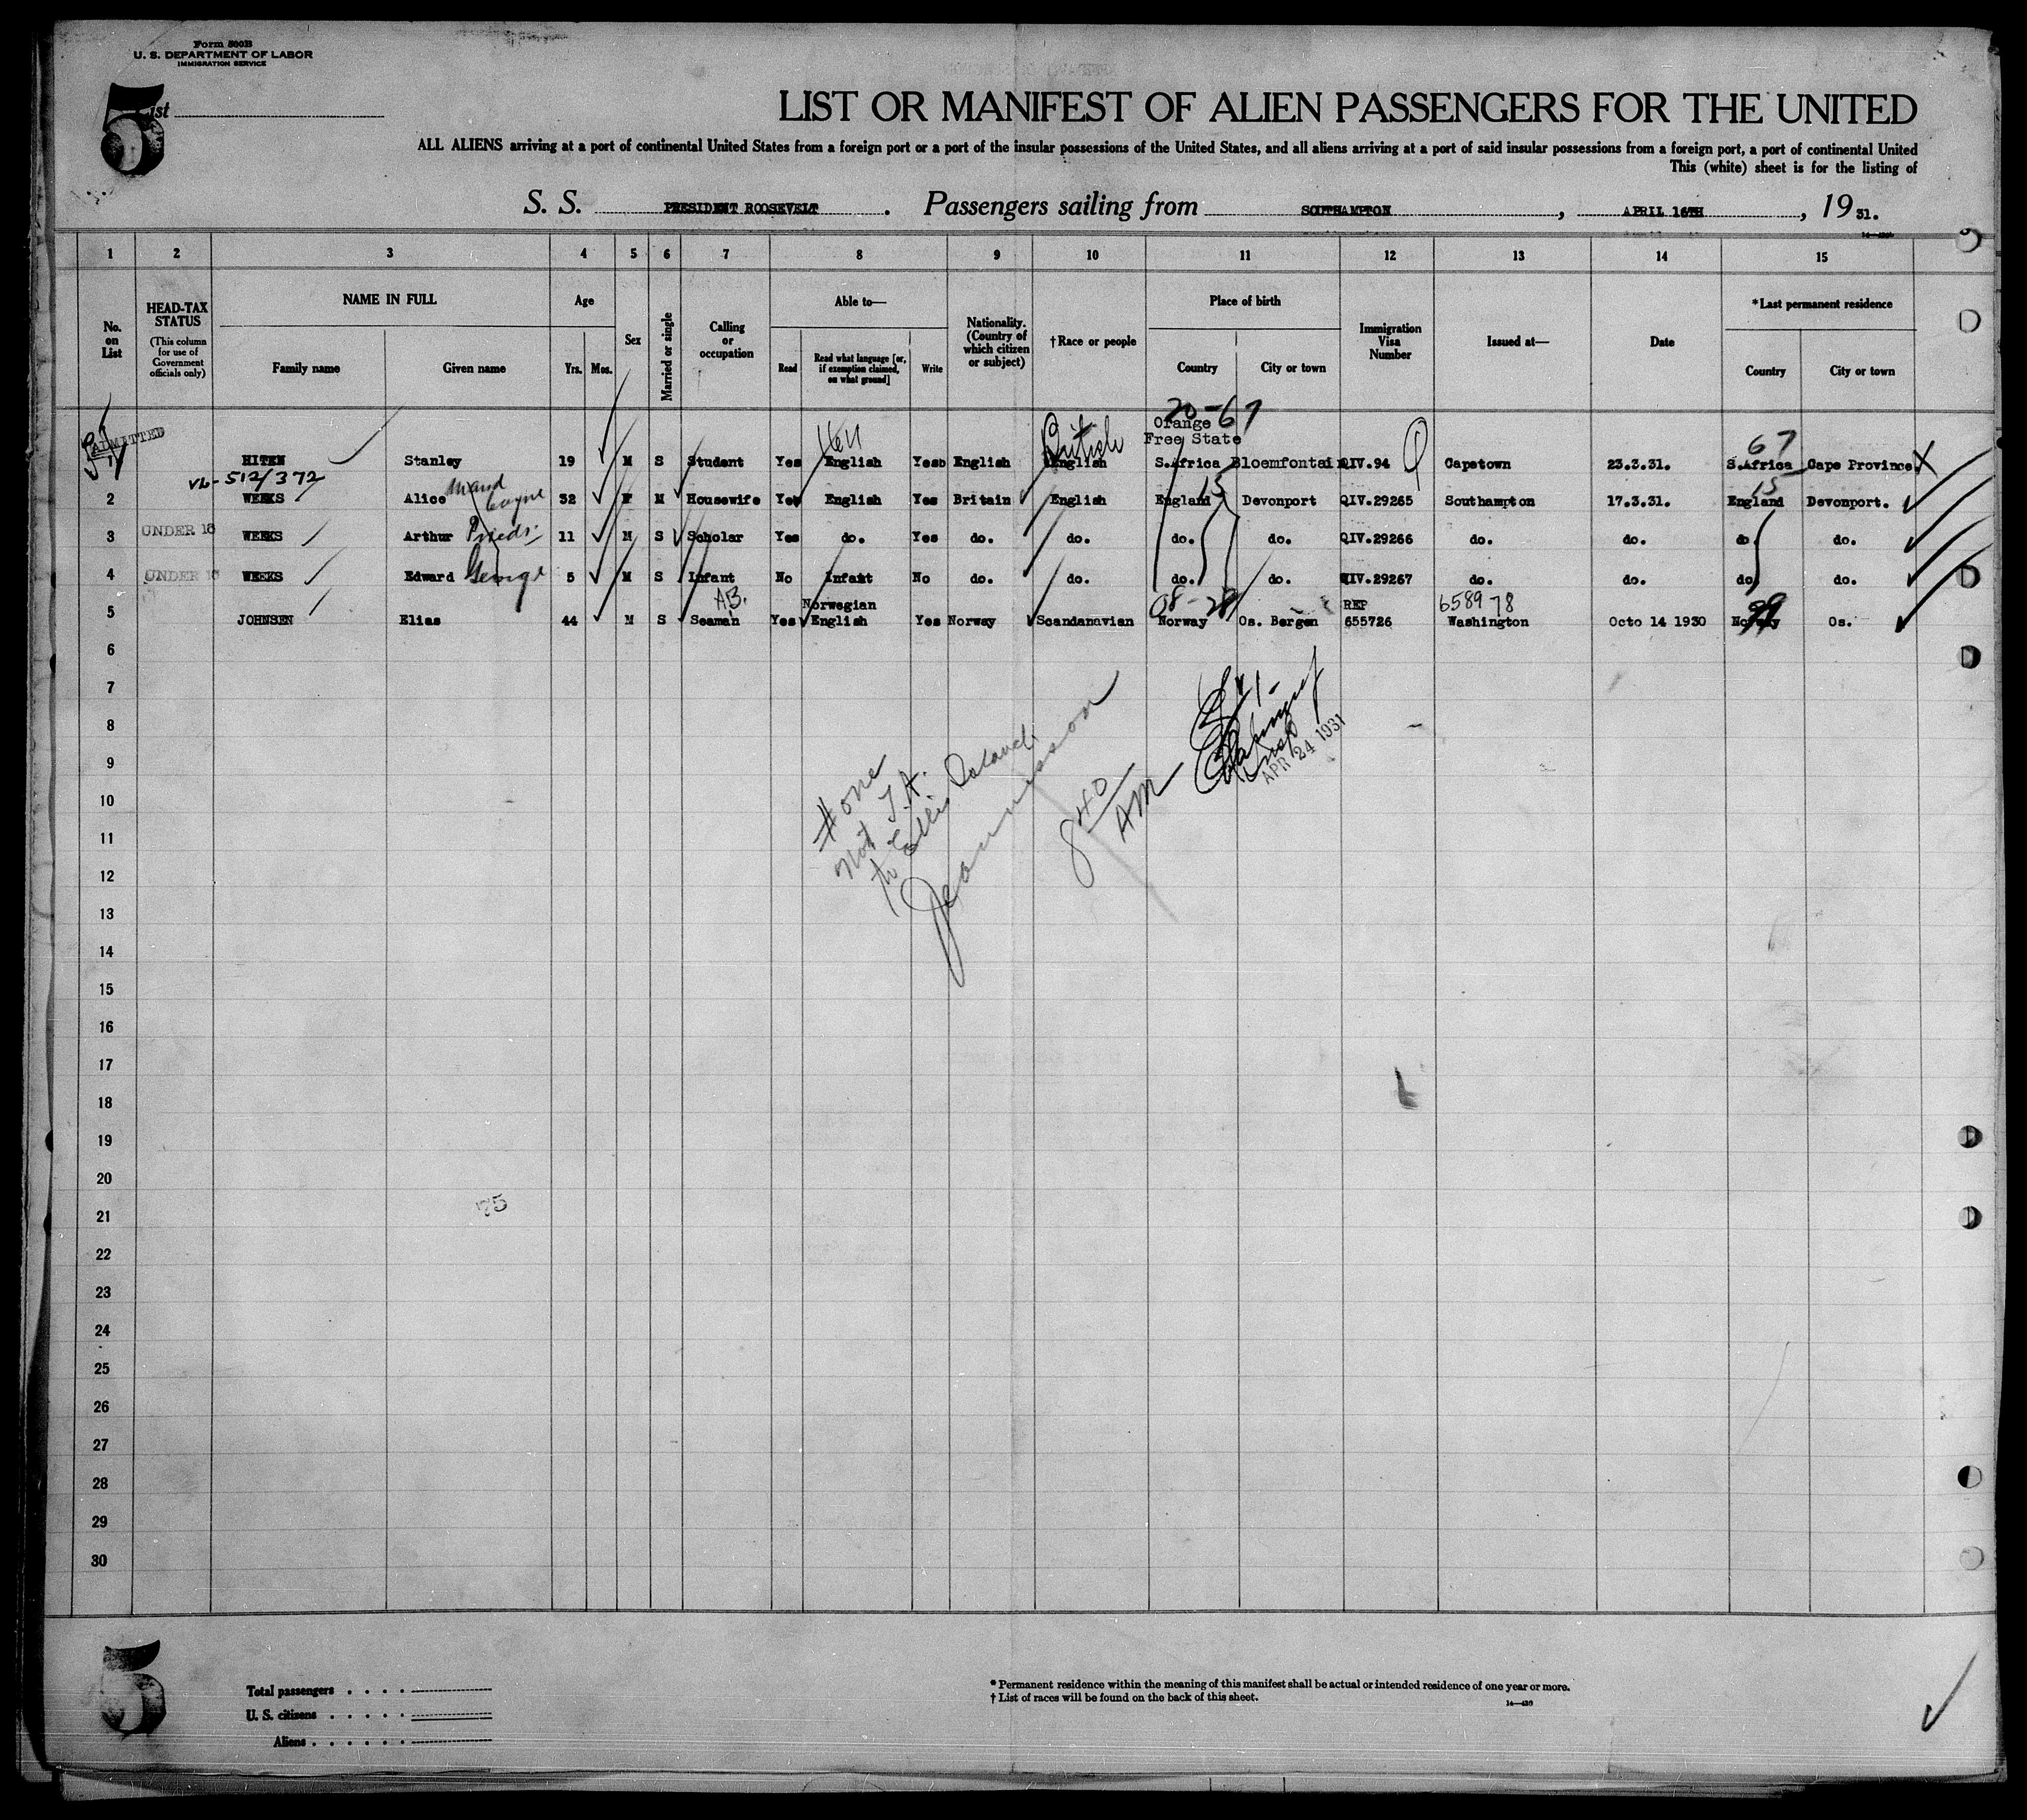 Form 500B
U. S. DEPARTMENT OF LABOR
IMMIGRATION SERVICE
5
List
LIST OR MANIFEST OF ALIEN PASSENGERS FOR THE UNITED
ALL ALIENS arriving at a port of continental United States from a foreign port or a port of the insular possessions of the United States, and all aliens arriving at a port of said insular possessions from a foreign port, a port of continental United
This (white) sheet is for the listing of
S. S. PRESIDENT ROOSEVELT. Passengers sailing from SOUTHAMPTON, APRIL 16TH, 1931.
1 2 3 4 5 6 7 8 9 10 11 12 13 14 15
No. on List
HEAD-TAX STATUS (This column for use of Government officials only)
NAME IN FULL
Family name Given name
Age
Yrs. Mos.
Sex
Married or single
Calling or occupation
Able to—
Read Read what language [or, if exemption claimed, on what ground] Write
Nationality. (Country of which citizen or subject)
†Race or people
Place of birth
Country City or town
Immigration Visa Number
Issued at—
Date
*Last permanent residence
Country City or town
20-67
Orange
ADMITTED British Free State 67
1 HITEN Stanley 19 M S Student Yes English Yesb English English S.Africa Bloemfontein QIV.94 Capetown 23.3.31. S.Africa Cape Province.
512/372 15 15
2 WEEKS Alice Maud 32 F M Housewife Yes English Yes Britain English England Devonport QIV.29265 Southampton 17.3.31. England Devonport.
3 UNDER 16 WEEKS Arthur 11 M S Scholar Yes do. Yes do. do. do. do. QIV.29266 do. do. do do.
4 UNDER 16 WEEKS Edward George 5 M S Infant No Infant No do. do. do. do. QIV.29267 do. do. do. do.
A.B. Norwegian 08-28 REP 658978 99
5 JOHNSEN Elias 44 M S Seaman Yes English Yes Norway Scandanavian Norway Os. Bergen 655726 Washington Octo 14 1930 Norway Os.
6
7
8
9
10
11
12
13
14
15
16
17
18
19
20
21
22
23
24
25
26
27
28
29
30
# one
not T.A.
to Ellis Island
840
AM
Insp
APR 24 1931
75
5
Total passengers
U. S. citizens
Aliens
* Permanent residence within the meaning of this manifest shall be actual or intended residence of one year or more.
† List of races will be found on the back of this sheet.
14—430